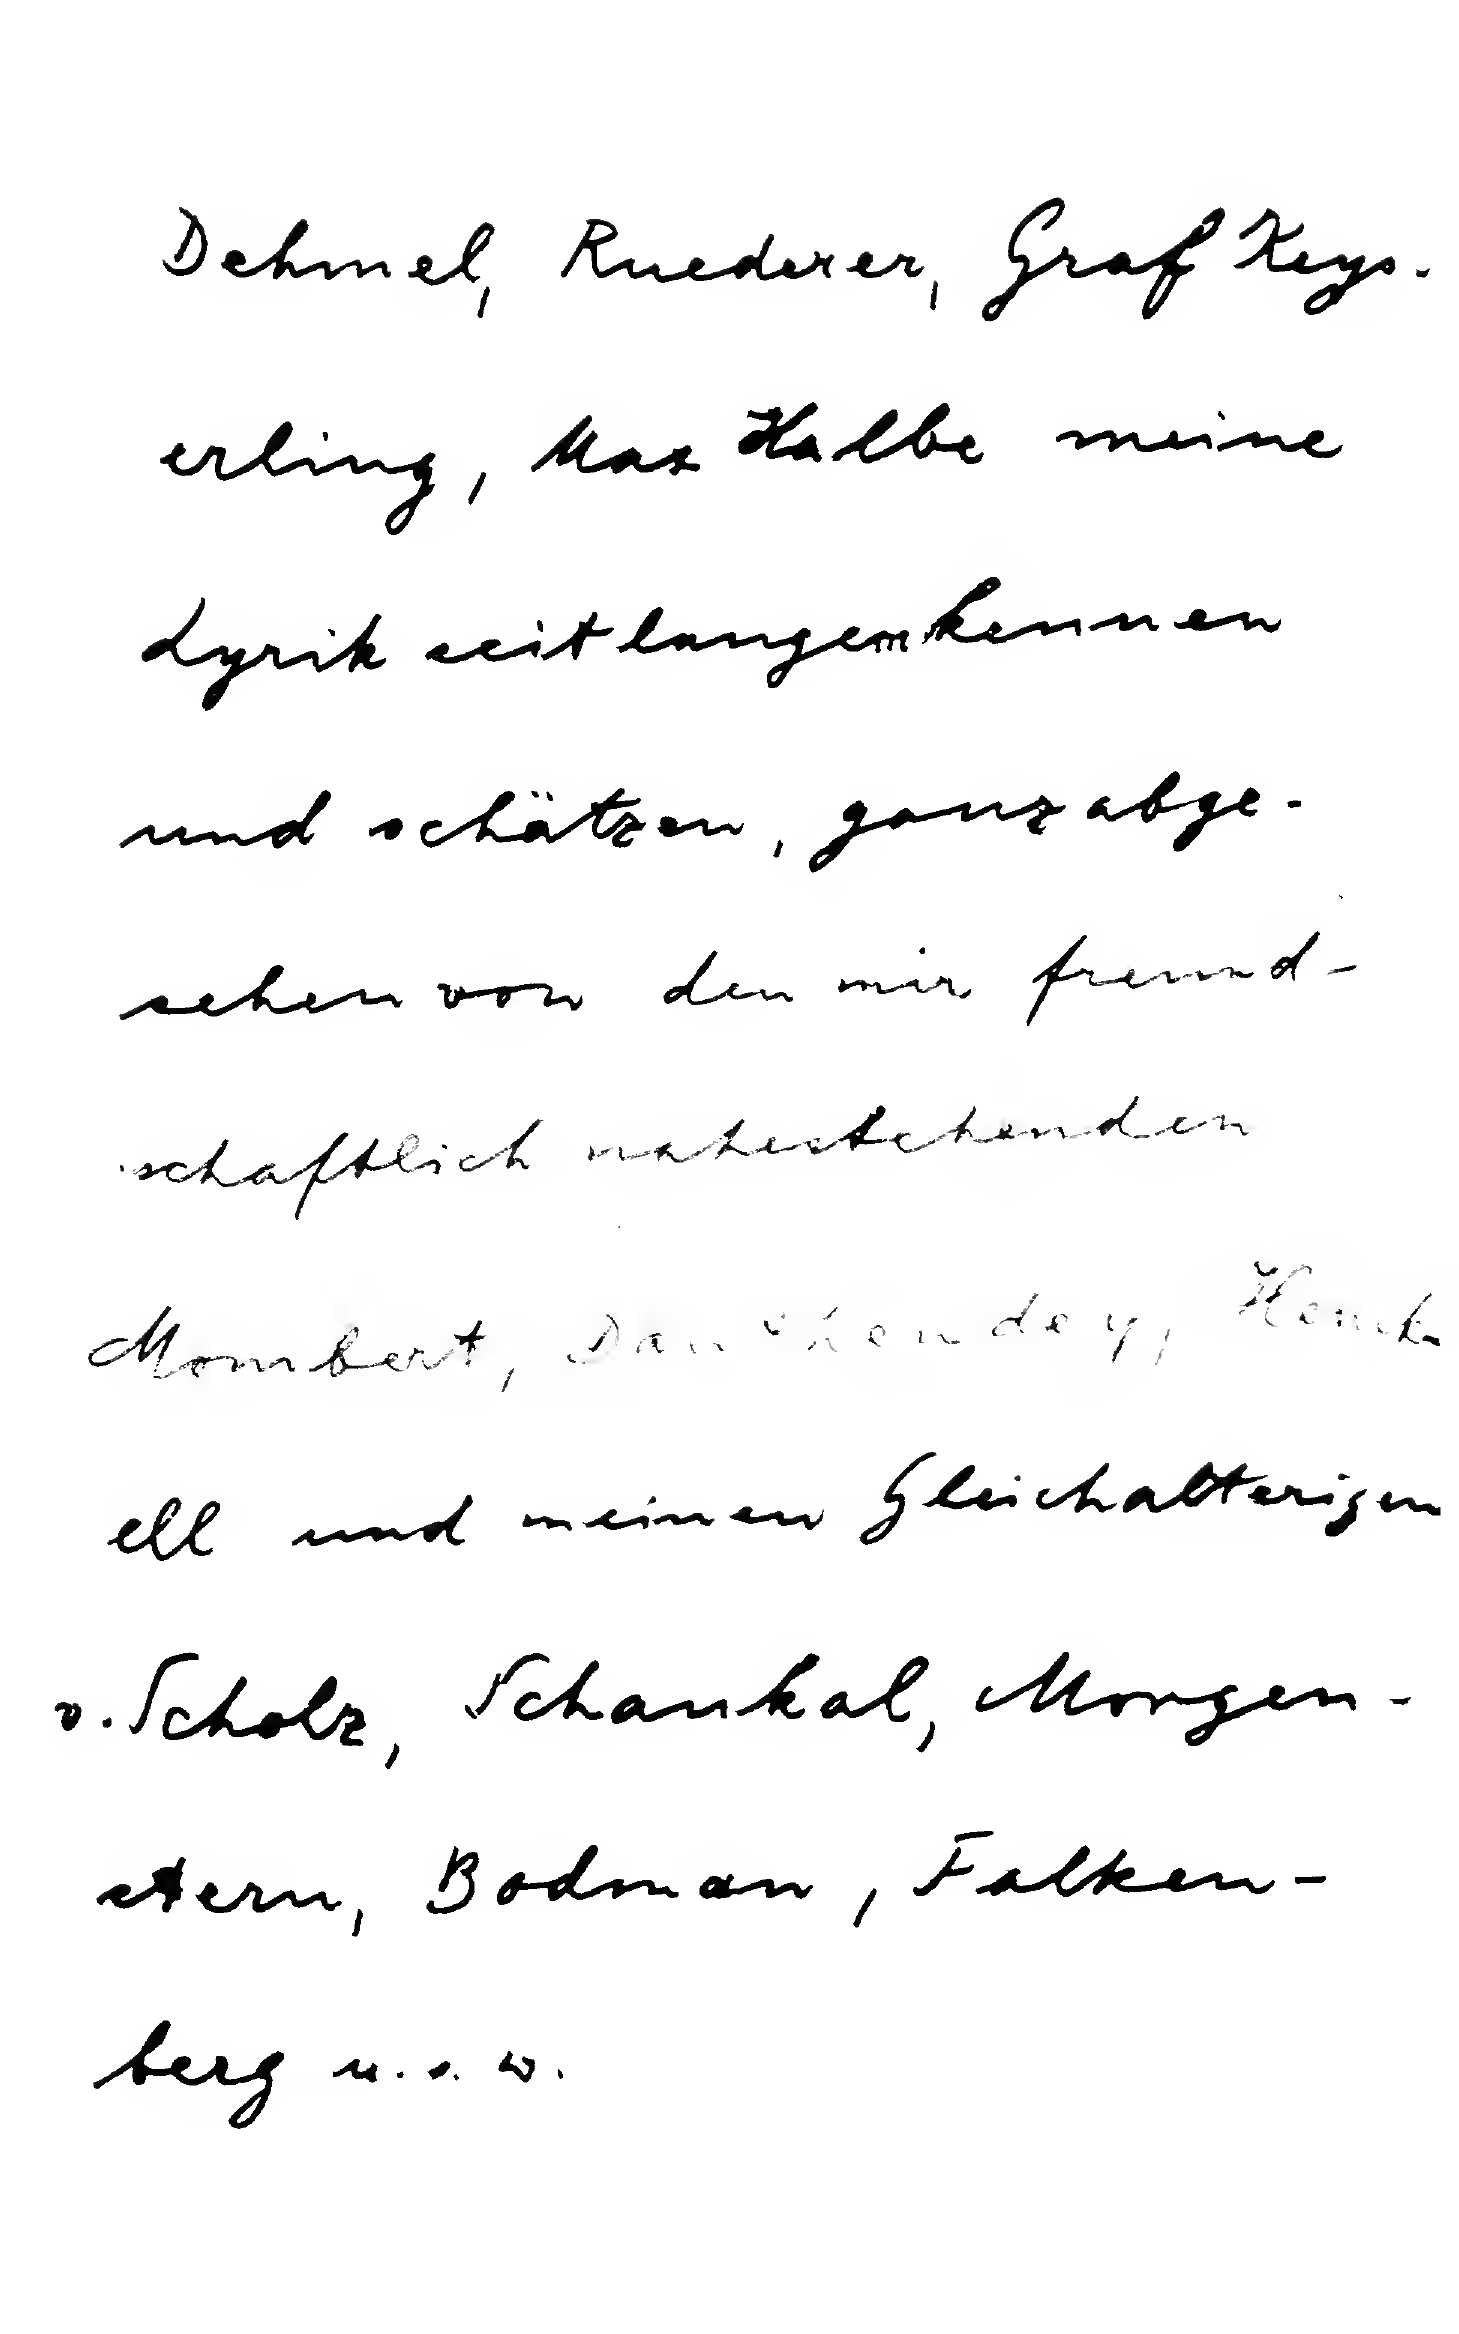 Dehmel, Ruederer, Graf Keys-
erling, Max Halbe meine
Lyrik seit langem kennen
und schätzen, ganz abge-
sehen von den mir freund-
schaftlich nahestehenden
Mombert, Dauthendey, Henck-
ell und meinen Gleichalterigen
v. Scholz, Schaukal, Morgen-
stern, Bodman, Falken-
berg u. s. w.